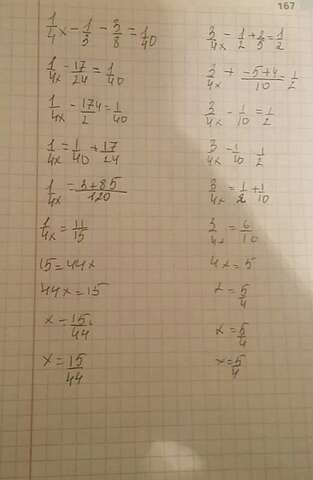 167
1/4x - 1/3 - 3/8 = 1/40
1/4x - 17/24 = 1/40
1/4x - 174/2 = 1/40
1/4x = 1/40 + 17/24
1/4x = 3+85/120
1/4x = 11/15
15=44x
44x=15
x - 15/44
x = 15/44
3/4x - 1/2 + 2/5 = 1/2
3/4x + -5+4/10 = 1/2
3/4x - 1/10 = 1/2
3/4x - 1/10 1/2
3/4x = 1/2 + 1/10
3/4x = 6/10
4x = 5
x = 5/4
x = 5/4
x = 5/4